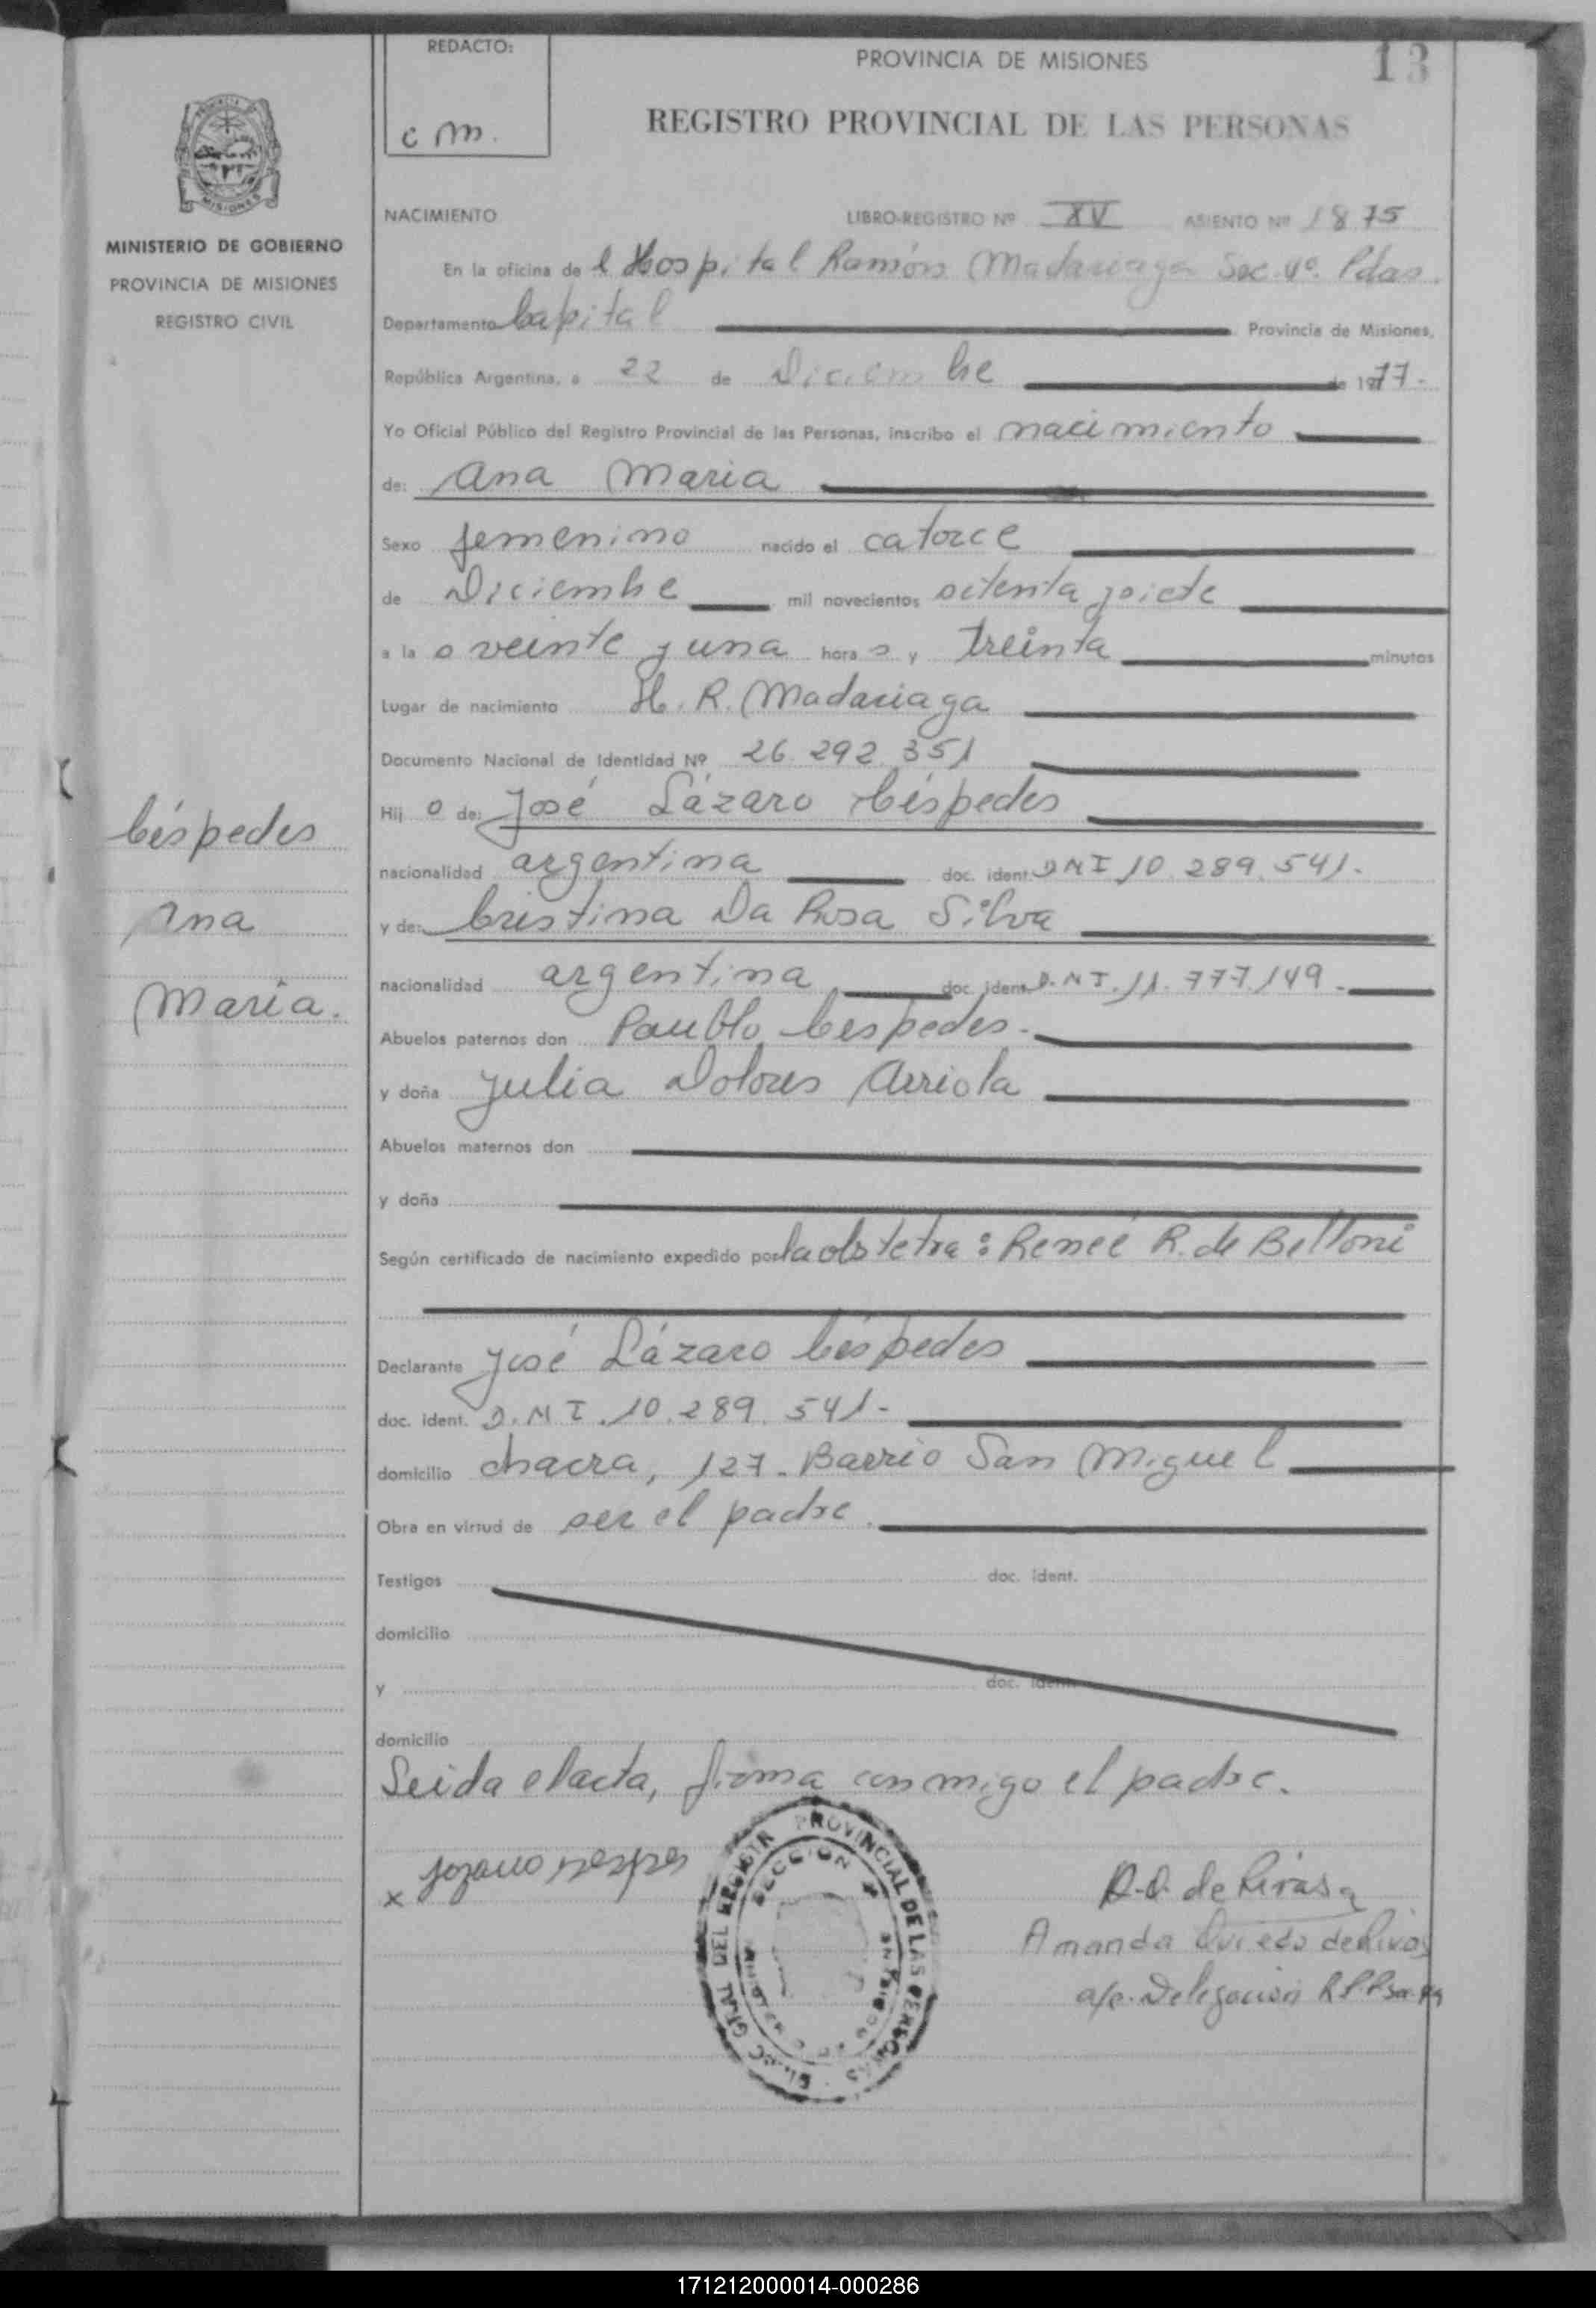 REDACTO:
c m.
PROVINCIA DE MISIONES
13
REGISTRO PROVINCIAL DE LAS PERSONAS
MISIONES
MINISTERIO DE GOBIERNO
PROVINCIA DE MISIONES
REGISTRO CIVIL
NACIMIENTO LIBRO-REGISTRO Nº XV ASIENTO Nº 1875
En la oficina de l Hospital Ramón Madariaga Sec. 4º. Pdas.
Departamento Capital Provincia de Misiones,
República Argentina, a 22 de Diciembre de 1977.-
Yo Oficial Público del Registro Provincial de las Personas, inscribo el nacimiento
de: Ana Maria
Sexo femenino nacido el catorce
de Diciembre mil novecientos setenta y siete
a la s veinte y una hora s y treinta minutos
Lugar de nacimiento H. R. Madariaga
Documento Nacional de Identidad Nº 26.292.351
Hij a de: José Lázaro Céspedes
nacionalidad argentina doc. ident. DNI 10.289.541.
y de: Cristina Da Rosa Silva
nacionalidad argentina doc. ident. D.N.I. 11.777.149.-
Abuelos paternos don Paublo Cespedes.-
y doña Julia Dolores Arriola
Abuelos maternos don
y doña
Según certificado de nacimiento expedido por la obstetra: Reneé R. de Belloni
Declarante José Lázaro Céspedes
doc. ident. D.N.I. 10.289.541.-
domicilio chacra, 127.- Barrio San Miguel
Obra en virtud de ser el padre.
Testigos doc. ident.
domicilio
y doc. ident.
domicilio
Leida el acta, firma conmigo el padre.
Céspedes
Ana
Maria.
x
DIREC GRAL DEL REGISTR PROVINCIAL DE LAS PERSONAS
SECCION 4
A.O. de Rivas
Amanda Oviedo de Rivas
a/c. Delegación
171212000014-000286